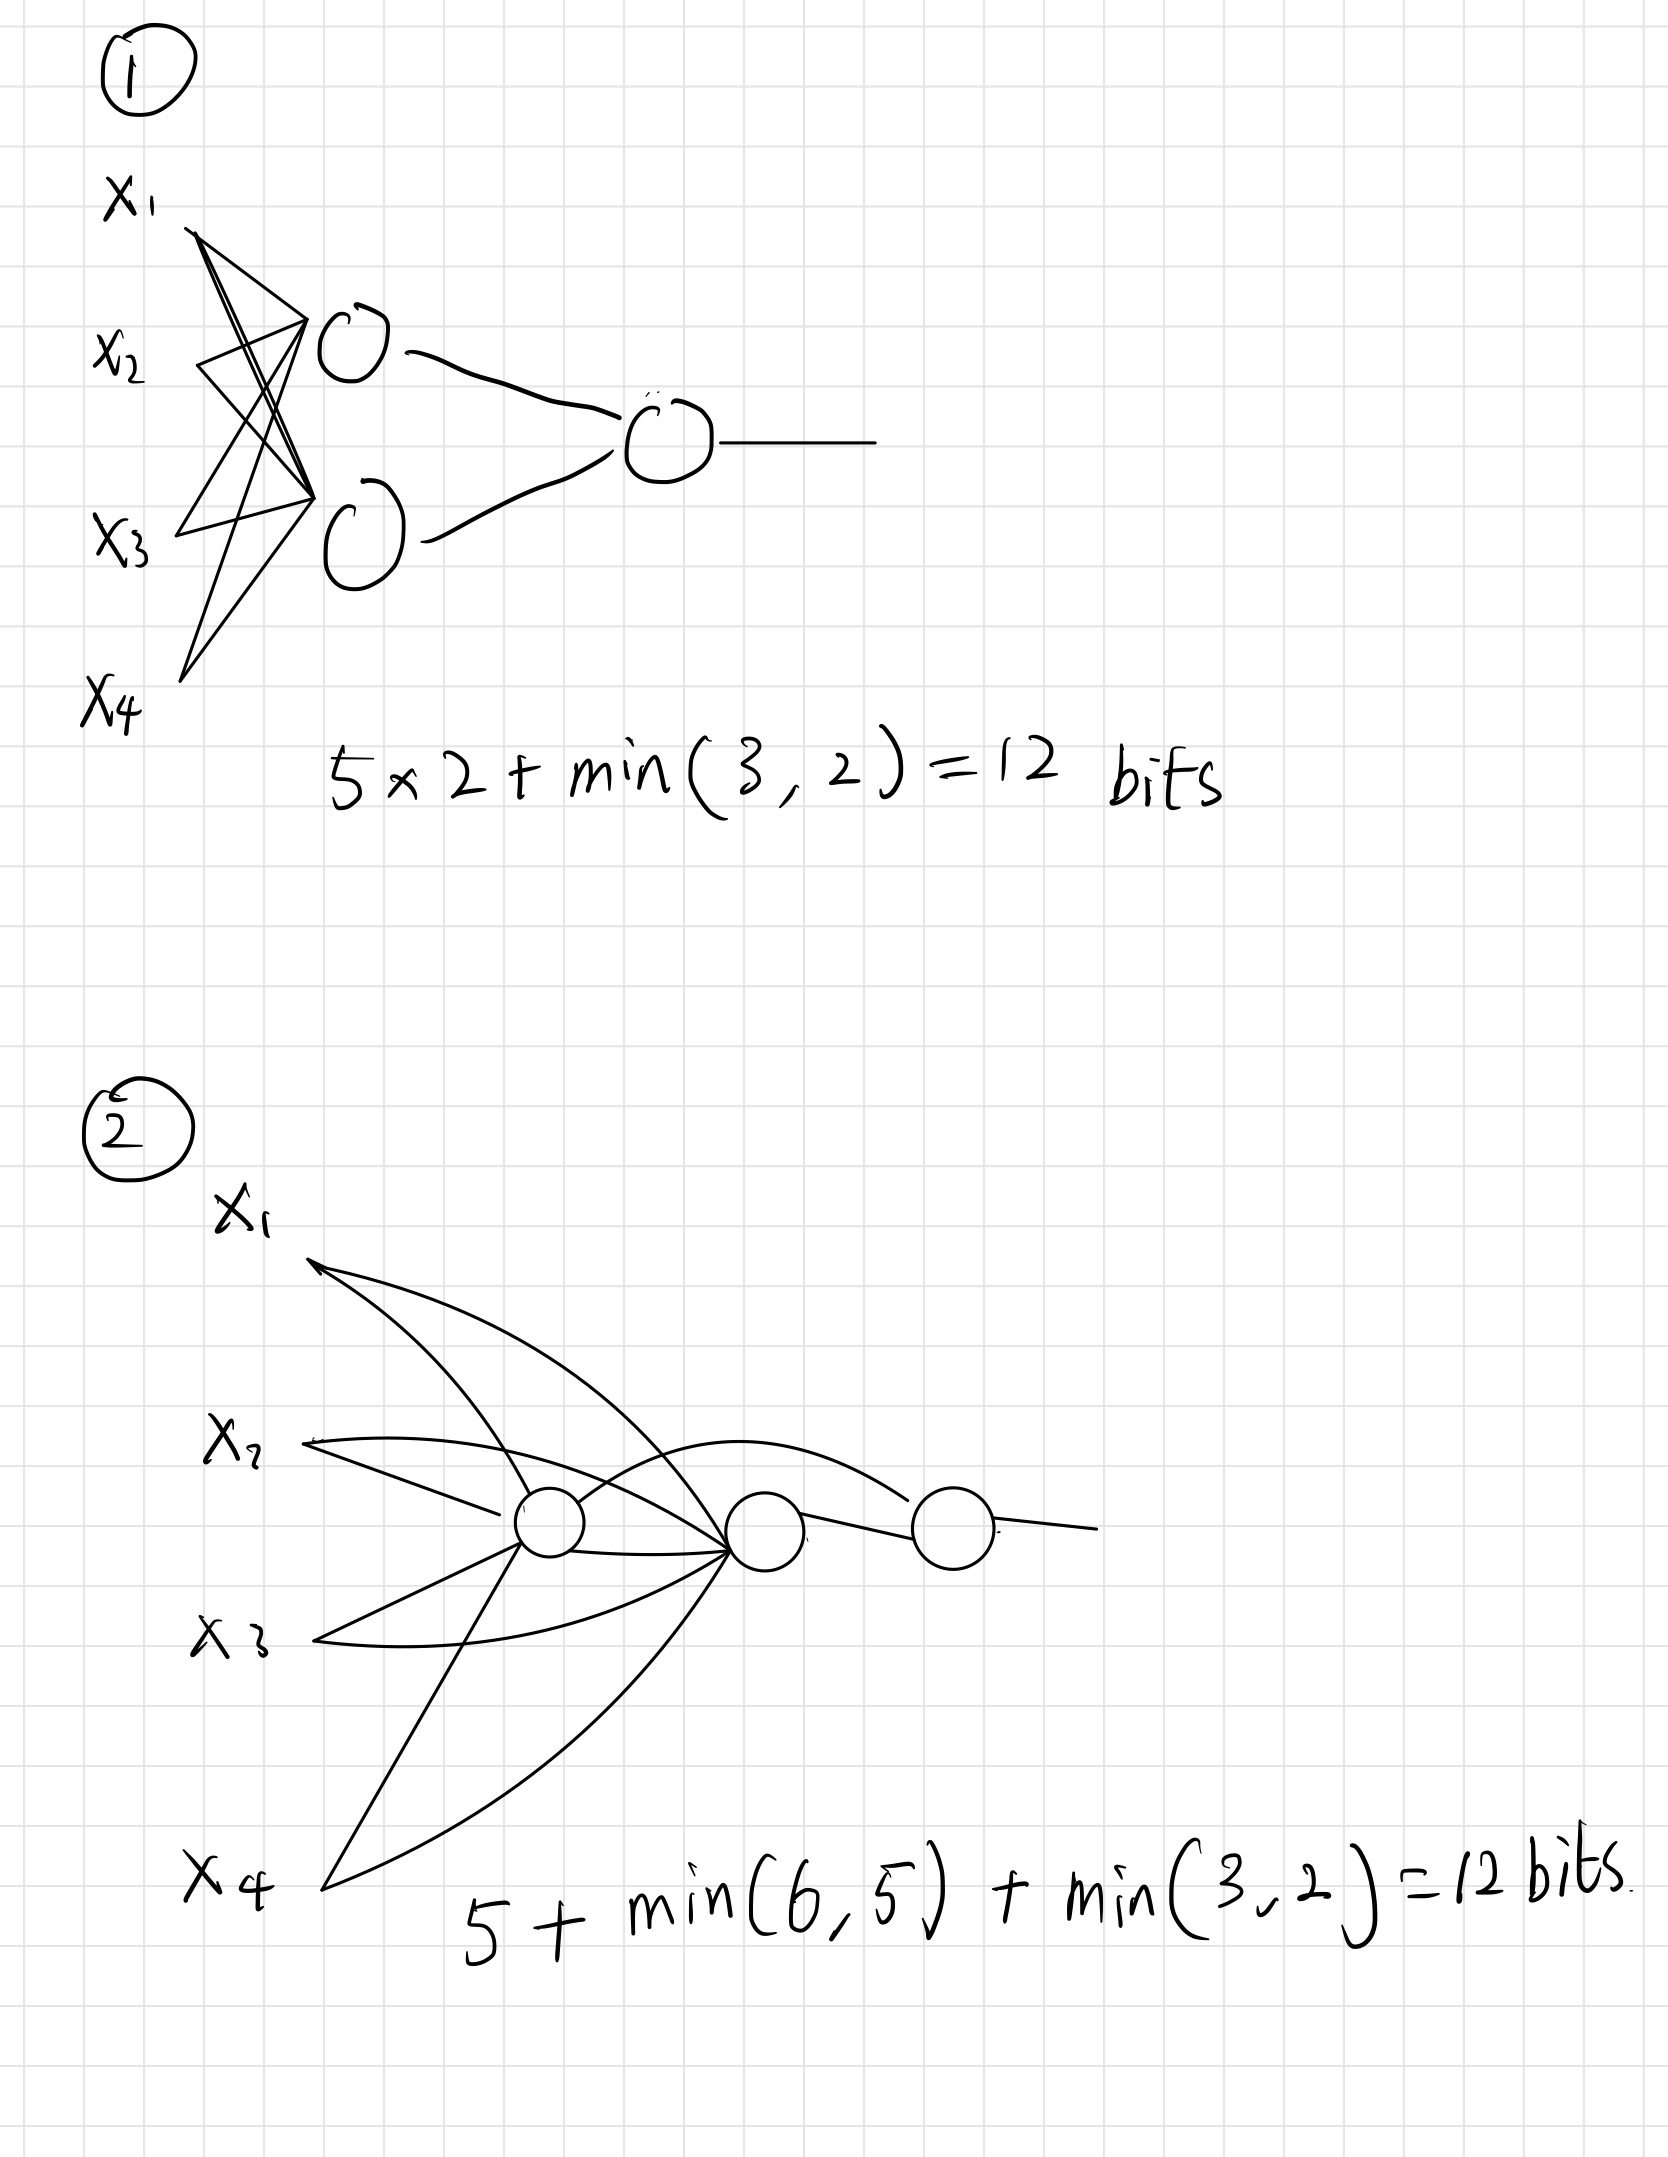 ①
X1
X2
X3
X4
5×2+min(3,2)=12 bits
②
X1
X2
X3
X4
5+min(6,5)+min(3,2)=12bits.